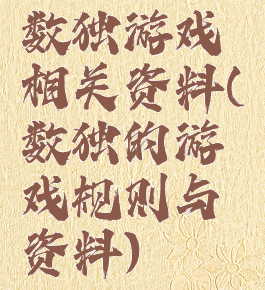 数独游戏
相关资料(
数独的游
戏规则与
资料)